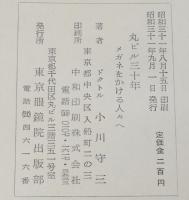 昭和三十一年八月十五日印刷
昭和三十一年九月一日発行
定価金二百円
丸ビル三十年
メガネをかける人々へ
著者
ドクトル 小川守三
東京都中央区入船町二の三
印刷所
中和印刷株式会社
東京都千代田区丸ビル三階三五一号室
発行所
東京眼鏡院出版部
電話⑳四六一六番